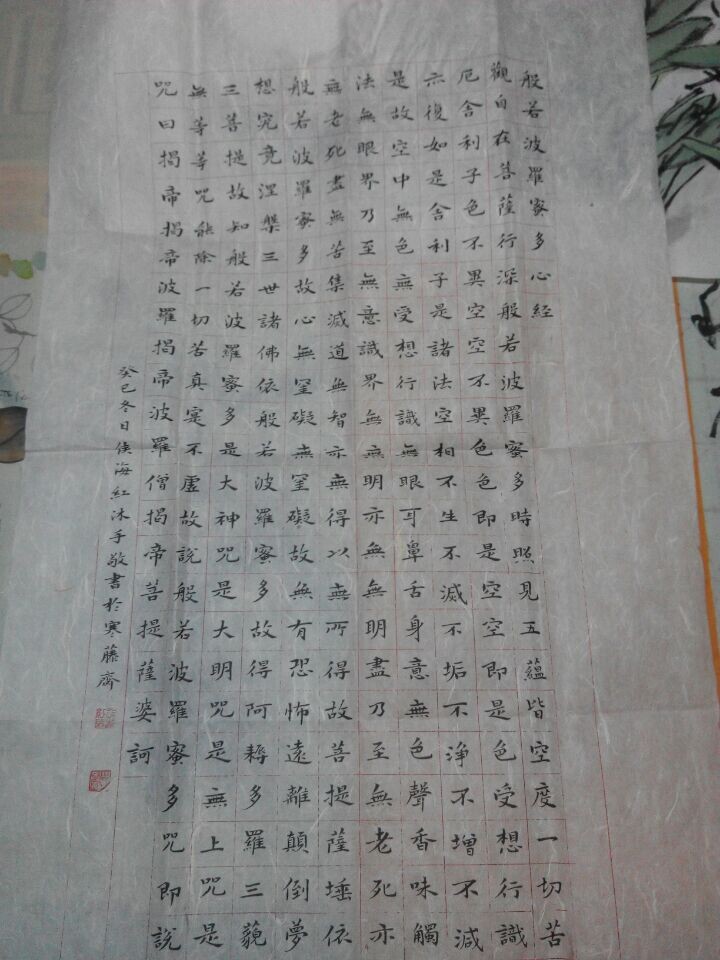 般若波羅蜜多心経
觀自在菩薩行深般若波羅蜜多時照見五蘊皆空度一切苦
厄舍利子色不異空空不異色色即是空空即是色受想行識
亦復如是舍利子是諸法空相不生不滅不垢不淨不增不減
是故空中無色無受想行識無眼耳鼻舌身意無色聲香味觸
法無眼界乃至無意識界無無明亦無無明盡乃至無老死亦
無老死盡無苦集滅道無智亦無得以無所得故菩提薩埵依
般若波羅蜜多故心無罣礙無罣礙故無有恐怖遠離顛倒夢
想究竟涅槃三世諸佛依般若波羅蜜多故得阿耨多羅三藐
三菩提故知般若波羅蜜多是大神咒是大明咒是無上咒是
無等等咒能除一切苦真寔不虛故說般若波羅蜜多咒即說
咒曰揭帝揭帝波羅揭帝波羅僧揭帝菩提薩婆訶
癸巳冬日侯海紅沐手敬書於寒藤齋